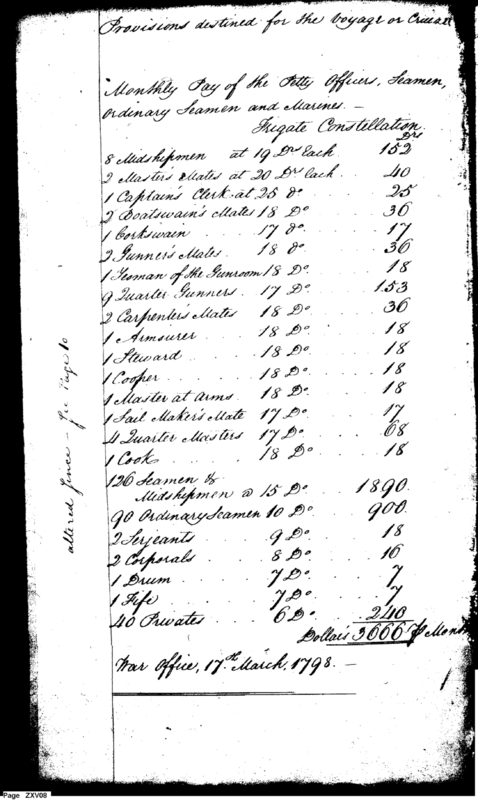 Provisions destined for the Voyage or Cruise
Monthly Pay of the Petty Officers, Seamen,
Ordinary Seamen and Marines. —
Frigate Constellation.
Drs
8 Midshipmen at 19 Drs each 152
2 Master's Mates at 20 Drs each 40
1 Captain's Clerk at 25 do 25
2 Boatswain's Mates 18 Do 36
1 Corkswain 17 do 17
2 Gunner's Mates 18 do 36
1 Yeoman of the Gunroom 18 Do 18
9 Quarter Gunners 17 Do 153
2 Carpenters Mates 18 Do 36
1 Armourer 18 Do 18
1 Steward 18 Do 18
1 Cooper 18 Do 18
1 Master at arms 18 Do 18
1 Sail Maker's Mate 17 Do 17
4 Quarter Masters 17 Do 68
1 Cook 18 Do 18
126 Seamen &
Midshipmen @ 15 Do 1890
90 Ordinary Seamen 10 Do 900
2 Serjeants 9 Do 18
2 Corporals 8 Do 16
1 Drum 7 Do 7
1 Fife 7 Do 7
40 Privates 6 Do 240
Dollars 3666 Month
War Office, 17th March, 1798. —
altered since — See Page 10
Page ZXV08